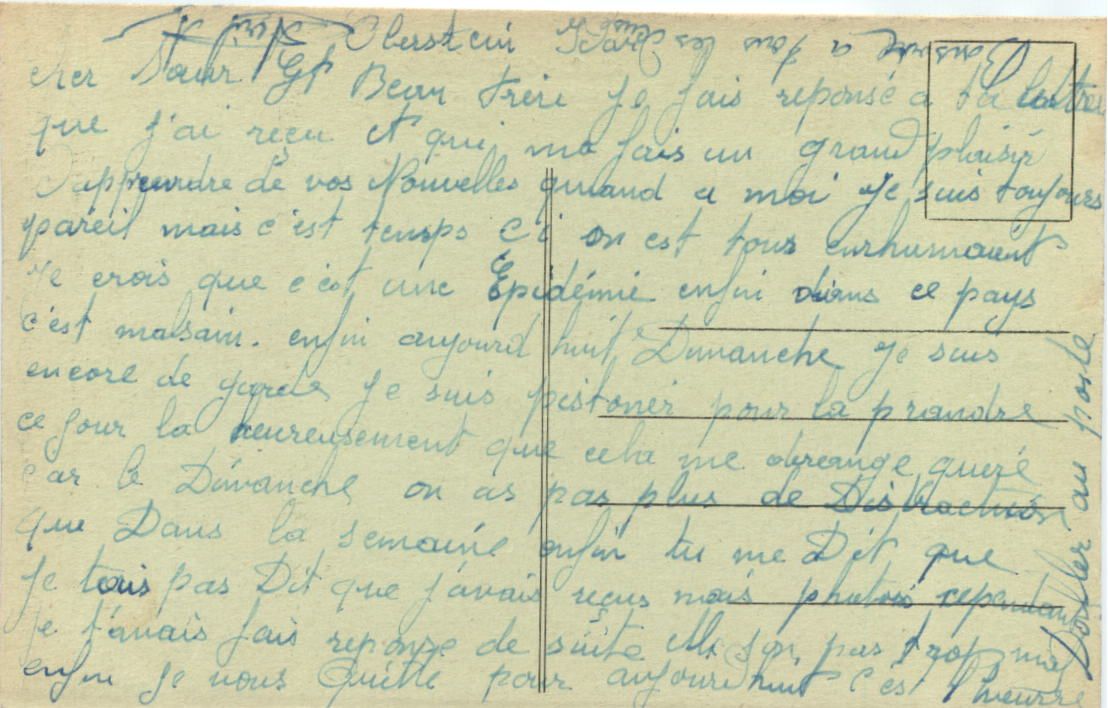 Oberstein
cher Soeur Et Beau Frère Je fais reponsé a ta lettre
que j'ai reçu et qui ma fais un grand plaisir
D'apprendre de vos Nouvelles quand a moi Je suis toujours
pareil mais c'est temps ci on est tous
Je crois que c'est une Epidémie enfin dans ce pays
c'est malsain. enfin aujourd huit Dimanche Je suis
encore de garde Je suis pistoner pour la prandre
ce jour la heureusement que cela me derange queré
car le Dimanche on as pas plus de Distraction
que Dans la semaine enfin tu me Dit que
Je tais pas Dit que j'avais reçus mais photois cependant
Je t'avais fais reponse de suite elle son pas trop mal
enfin Je vous Quitte pour aujourdhuit c'est l'heurre
au poste
a tous les